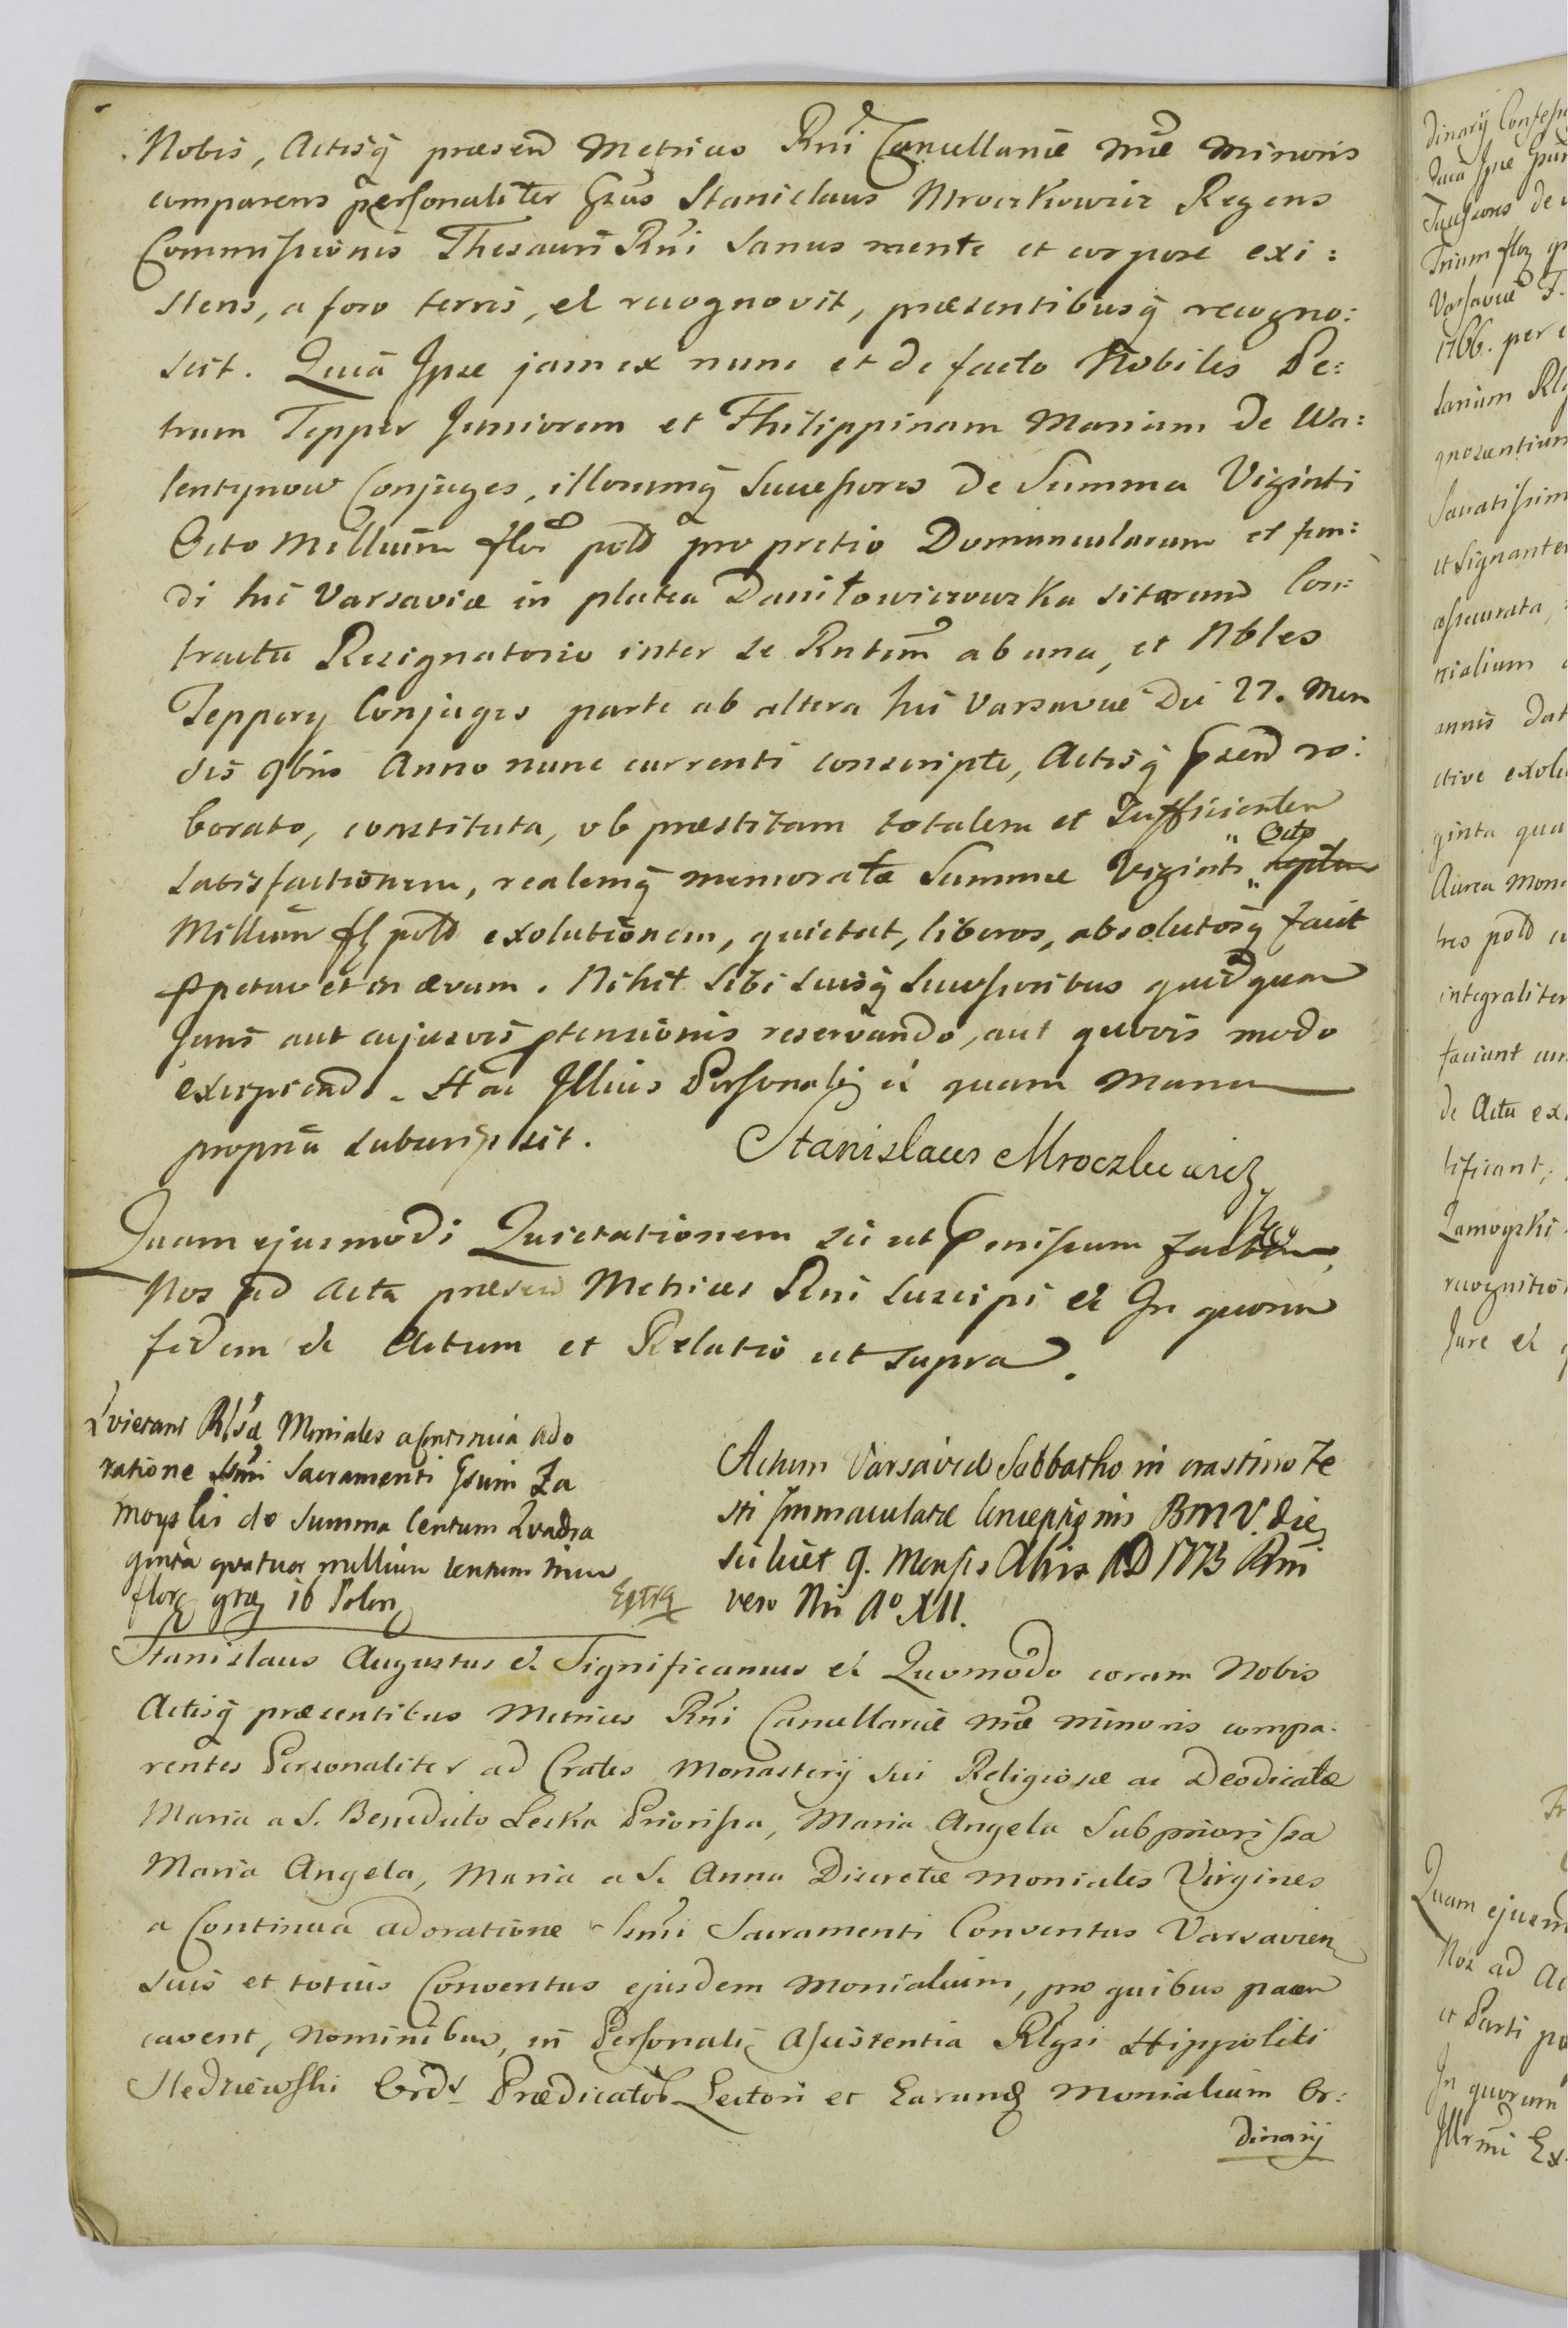 Nobis, Actisq̃ praesen Metrices Rñi Cancellariæ nræ Minoris
comparens personaliter Gsus Stanislaus Mroczkiewicz Regens
Commissionis Thesauri Rñi sanus mente et corpore exi:
stens, a foro terris, et recognovit, præsentibusq̃ recogno:
scit. Quia Ipse jam ex nunc et de facto Nobiles Pe:
trum Tepper Juniorem et Philippinam Mariam de Wa:
lentynow Conjuges, illorumq̃ Successores de Summa Viginti
Octo Millium flor pold pro pretio Domuncularum et fun:
di hic Varsaviæ in platea Daniłowiczowska sitarum Con:
tractu Resignatorio inter se Rntem ab una, et Nbles
Teppery Conjuges parte ab altera hic Varsaviæ Die 27. Men
sis 9bris Anno nunc currenti conscripto, Actisq̃ psen ro:
borato, constituta, ob præstitam totalem et Sufficienten
satisfactionem, realemq̃ memoratæ Summæ Viginti Octo
Millium fl pold exolutionem, quietat, liberos, absolutosq̃ facit
ppetuo et in ævum. Nihil sibi suisq̃ Successoribus quidquam
Juris aut cujusvis ptensionis reservando, aut quovis modo
excipiendo. Hac Illius Personali quam Manu
propria subscripsit. Stanislaus Mroczkiewicz
Quam ejusmodi Quietationem sic ut pmissum
Nos ad Acta præsen Metrices Rñi suscipi et In quorum
fidem et Actum et Relatio ut supra.
Quietant Rlsæ Moniales a Continua ado
ratione ssmi Sacramenti Gsum Za
moyski de Summa Centum Quadra
ginta quatuor millium centum trium
flor gros 16 Polon
Extra
Actum Varsaviæ Sabbatho in crastino Fe
sti Immaculatæ Conceptionis BMV. die
scilicet 9. Mensis Xbris AD 1775 Rñi
vero Nri Aº XII.
Stanislaus Augustus et Significamus et Quomodo coram Nobis
Actisq̃ præsentibus Metrices Rñi Cancellariæ nræ minoris compa:
rentes Personaliter ad Crates Monasterij sui Religiosæ ac Deodicatæ
Maria a S. Benedicto Lecka Priorissa, Maria Angela Subpriorissa
Maria Angela, Maria a S. Anna Discretæ Moniales Virgines
a Continua adoratione Ssmi Sacramenti Conventus Varsavien
suis et totius Conventus ejusdem Monialium, pro quibus
cavent, nominibus, in Personali Assistentia Rlgsi Hippoliti
Ord Prædicator Lectori et Earund Monialium Or:
dinarij
dinarij
Quia Ipse
Trium flor
Varsaviæ
1766. per
gnoscentium
et Signanter
nialium
annis dat
ctive exolu
ginta qua
Aurea Mone
tres pold
integraliter
faciunt
de Actu ex
tificant,
Zamoyski
recognitio
Jure et
Quam ejusm
Nos ad Ac
et Parti
In quorum